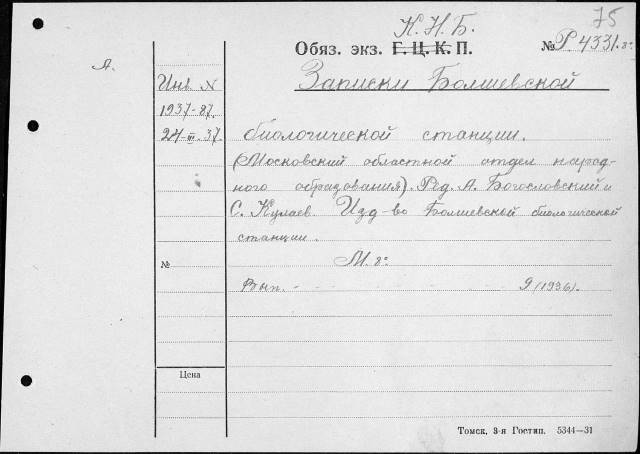 75
К. Н. Б.
Обяз. экз. Г. Ц. К. П. № Р 4331. 8°
А.
Записки Болшевской
Инв. N
1937-87.
24-III-37.
биологической станции.
(Московский областной отдел народ-
ного образования). Ред. А. Богословский и
С. Кулаев. Изд-во Болшевской биологической
станции.
М. 8°
№
Вып. 9 (1936).
Цена
Томск, 3-я Гостип. 5344—31